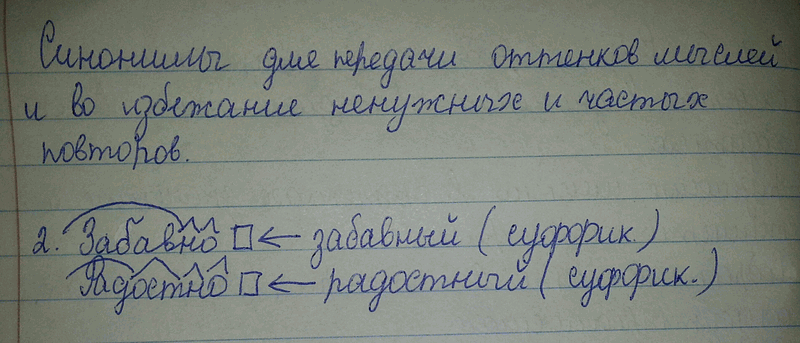 Синонимы для передачи оттенков мыслей
и во избежание ненужных и частых
повторов.
2. Забавно □ ← забавный (суффик.)
Радостно □ ← радостный (суффик.)